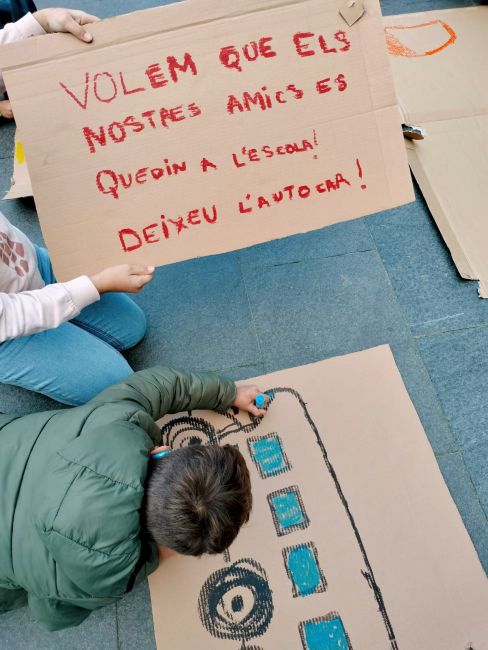 VOLEM QUE ELS
NOSTRES AMICS ES
QUEDIN A L'ESCOLA!
DEIXEU L'AUTOCAR!